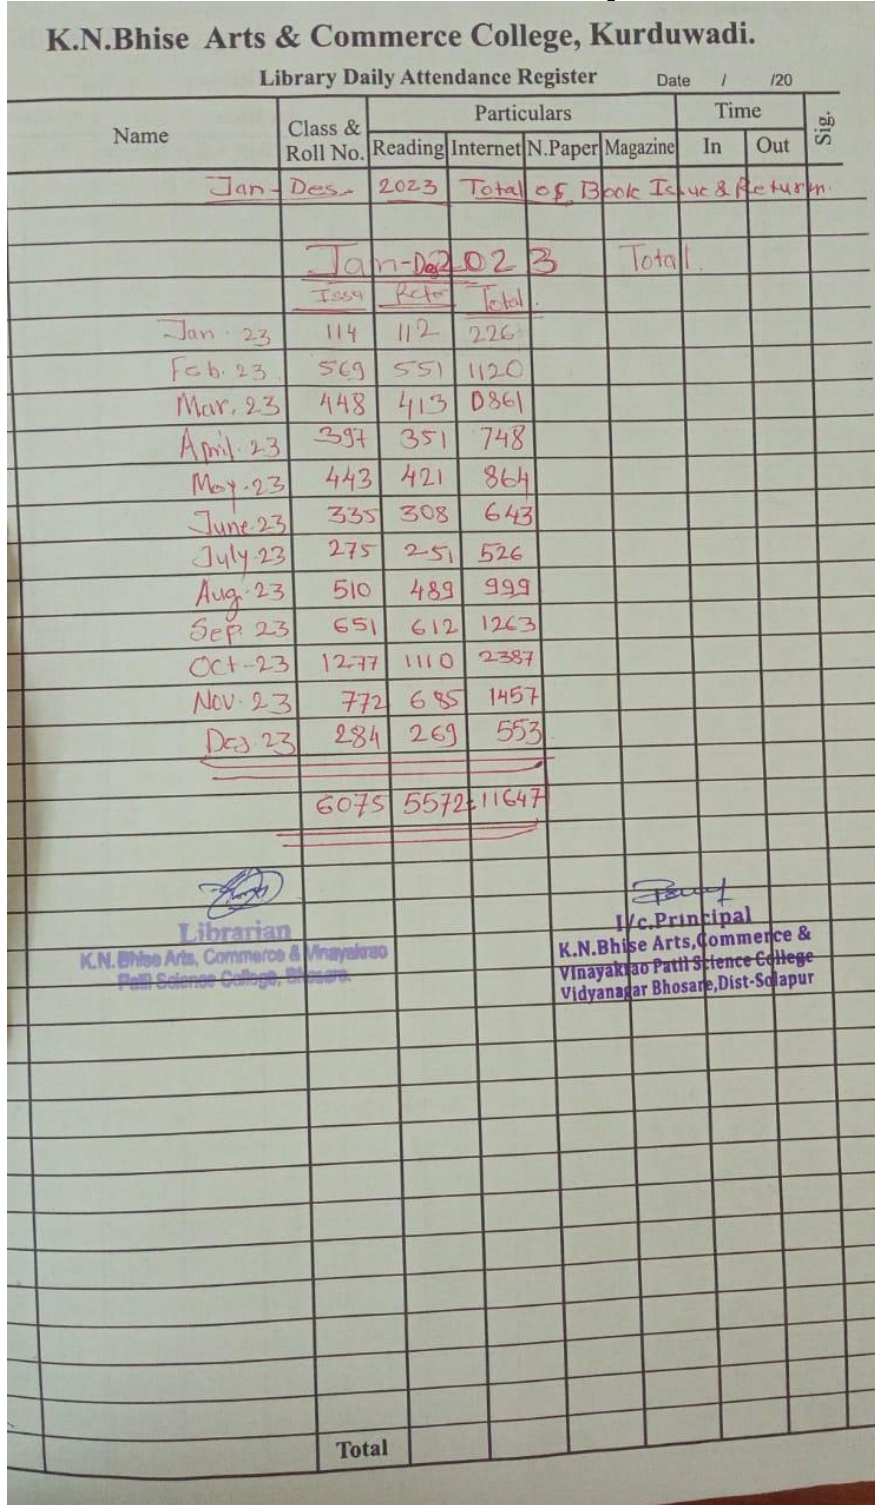 K.N.Bhise Arts & Commerce College, Kurduwadi.
Library Daily Attendance Register Date / /20
Name Class & Roll No. Particulars Time Sig.
Reading Internet N.Paper Magazine In Out
Jan - Des - 2023 Total of Book Issue & Return.
Jan-Des 2023 Total.
Issu Retu Total.
Jan - 23 114 112 226
Feb. 23 569 551 1120
Mar. 23 448 413 0861
April. 23 397 351 748
May - 23 443 421 864
June. 23 335 308 643
July. 23 275 251 526
Aug. 23 510 489 999
Sep. 23 651 612 1263
Oct - 23 1277 1110 2387
Nov. 23 772 685 1457
Des. 23 284 269 553
6075 5572 = 11647
Librarian
K.N. Bhise Arts, Commerce & Vinayakrao
Patil Science College, Bhosare.
I/c.Principal
K.N.Bhise Arts,Commerce &
Vinayakrao Patil Science College
Vidyanagar Bhosare,Dist-Solapur
Total